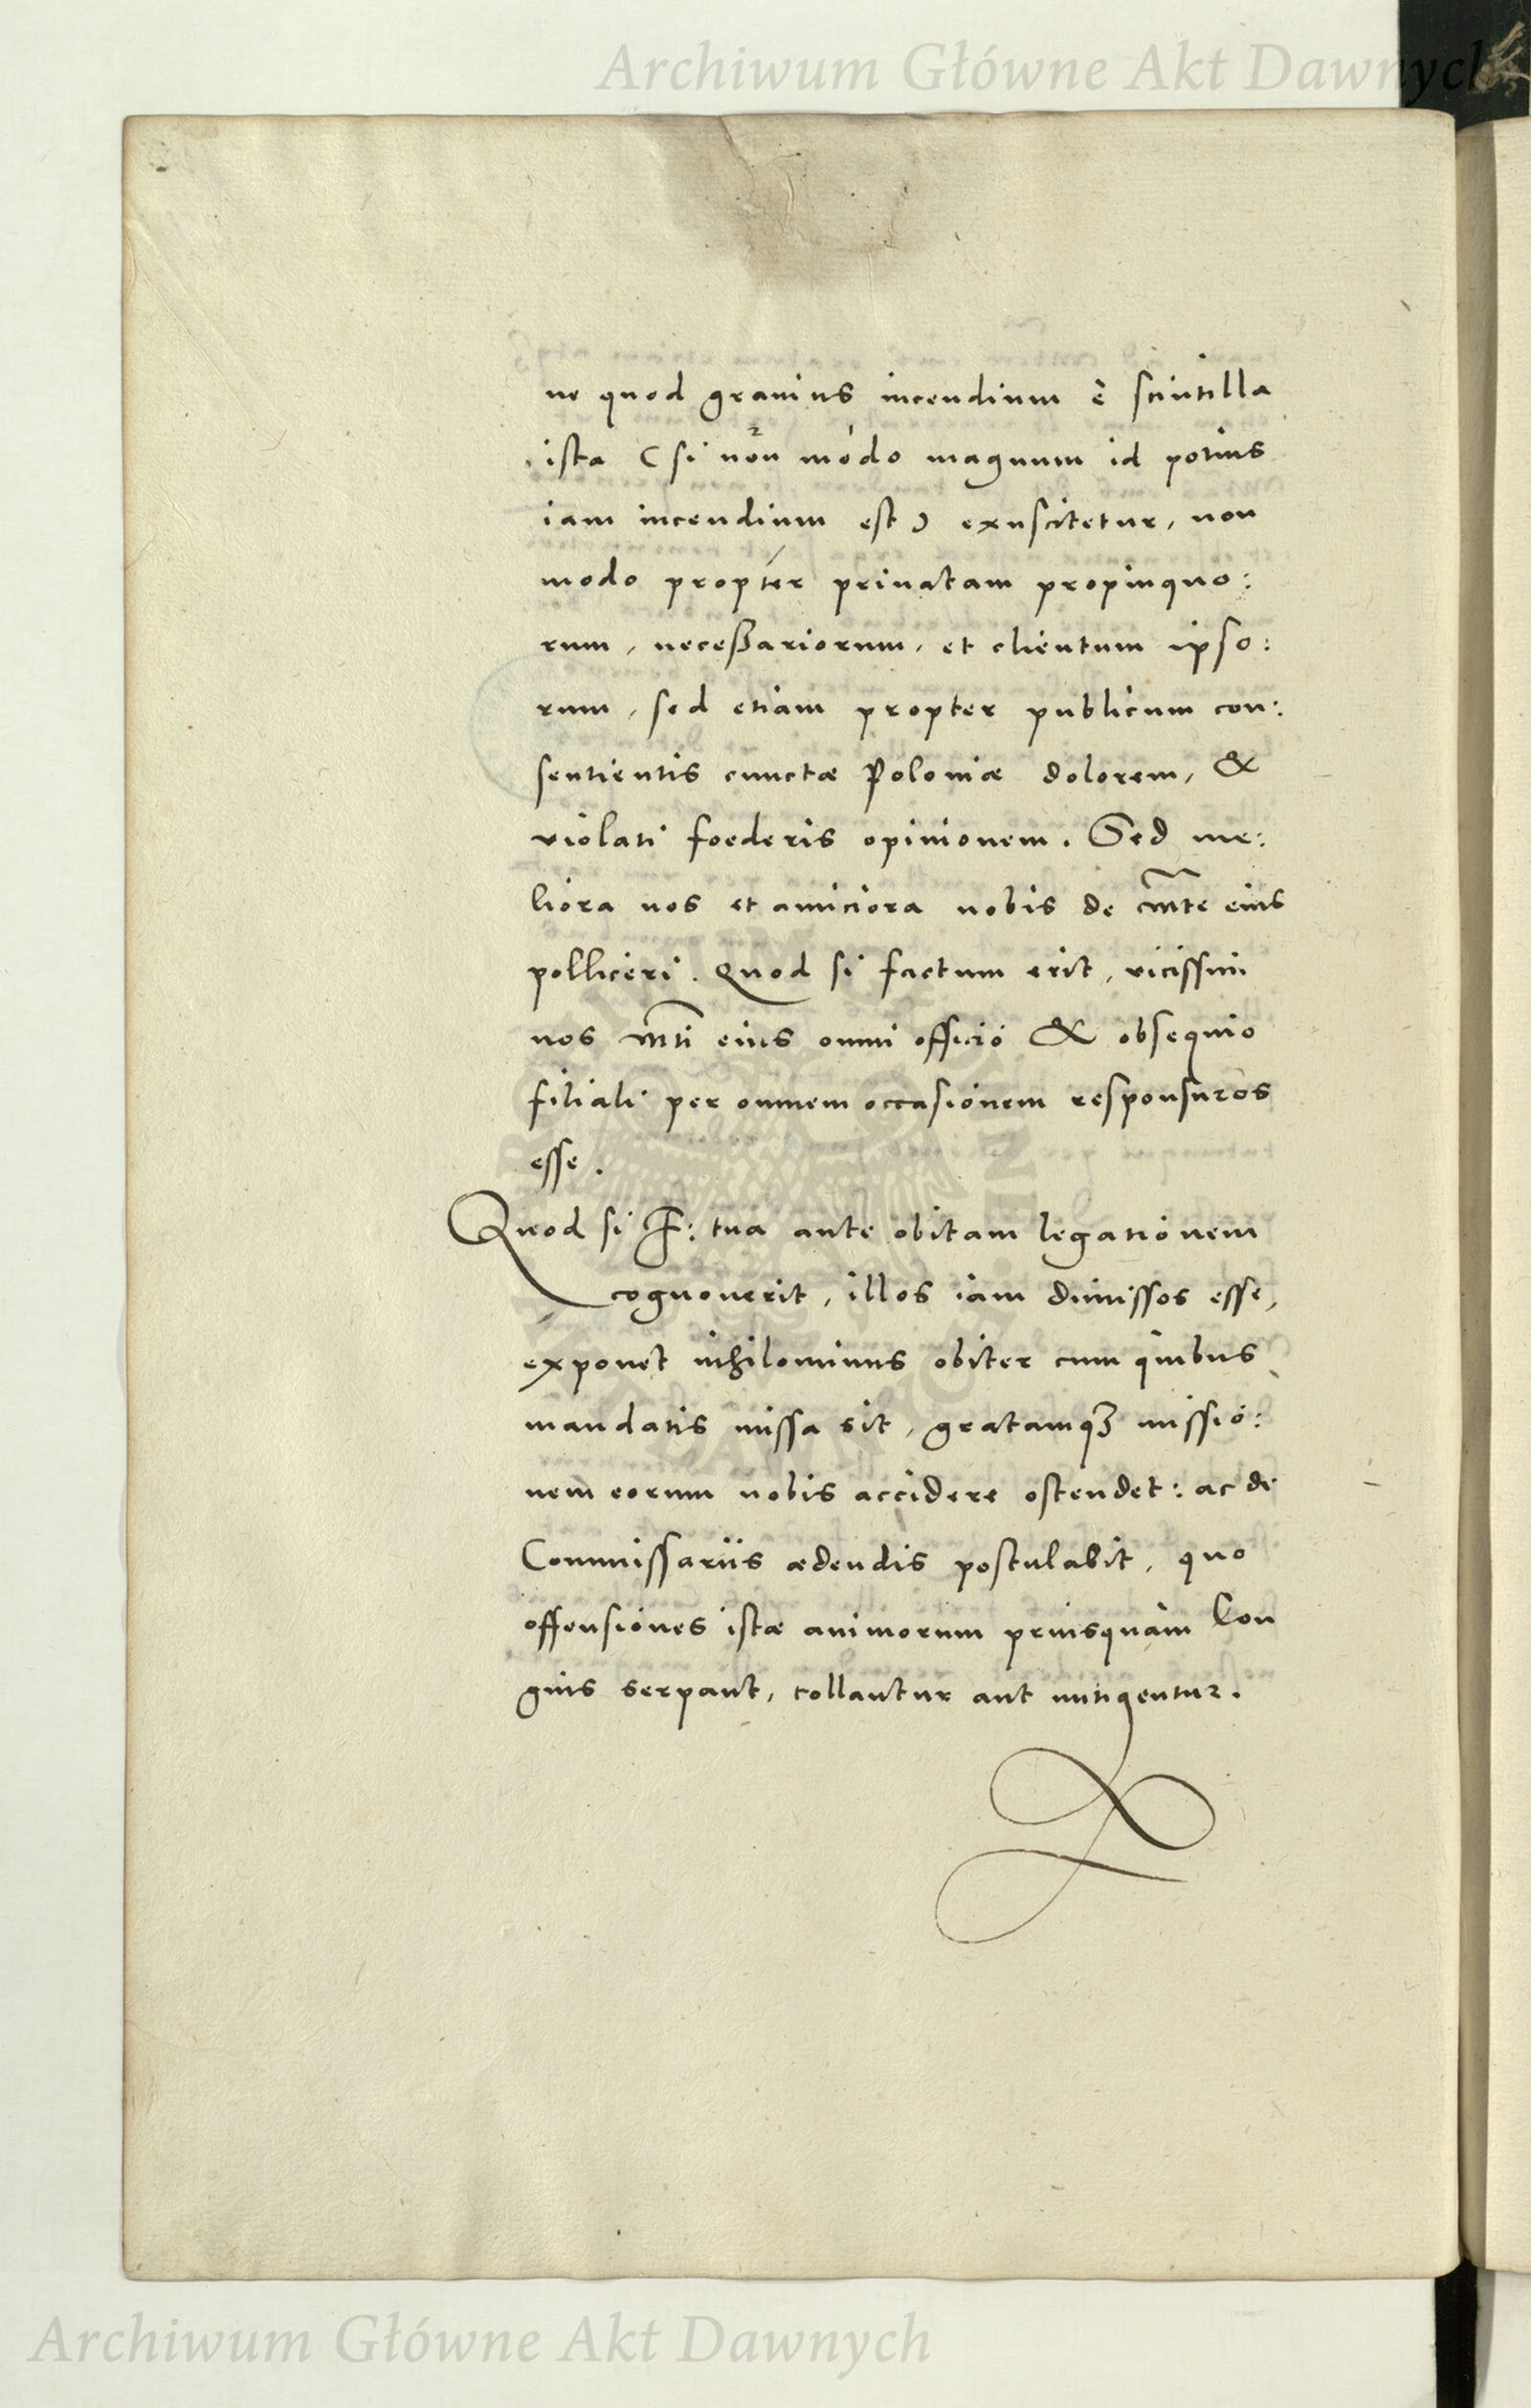 Archiwum Główne Akt Dawnych
ne quod grauius incendium è scintilla
ista (si non modo magnum id potius
iam incendium est) exuscitetur, non
modo propter priuatam propinquo:
rum, neceßariorum, et clientum ipso:
rum, sed etiam propter publicum con:
sentientis cunctæ Poloniæ dolorem, &
violati foederis opinionem. Sed me:
liora nos et amiciora nobis de Mte eius
polliceri. Quod si factum erit, vicissim
nos Mti eius omni officio & obsequio
filiali per omnem occasionem responsuros
esse.
Quod si F: tua ante obitam legationem
cognouerit, illos iam dimissos esse,
exponet nihilominus obiter cum quibus
mandatis missa sit, gratamqȝ missio:
nem eorum nobis accidere ostendet: ac de
Commissariis ædendis postulabit, quo
offensiones istæ animorum priusquam lon
gius serpant, tollantur aut mitigentur.
Archiwum Główne Akt Dawnych